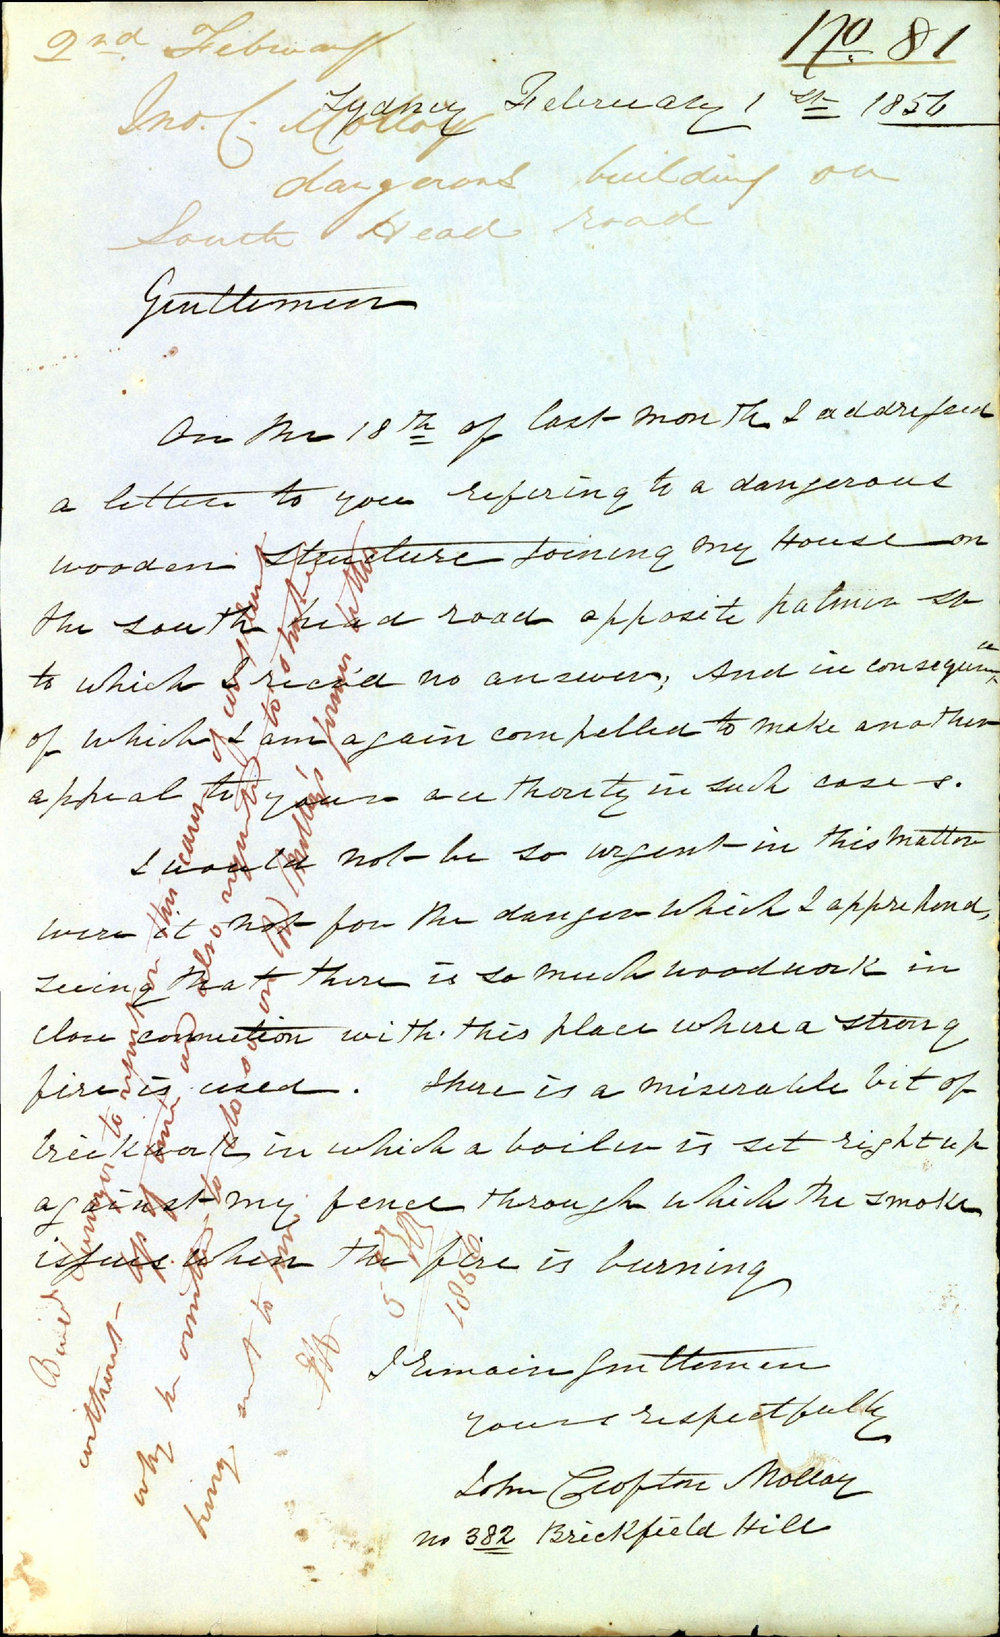 No. 81
2nd. February
Sydney February 1st 1856
Jno. C. Molloy
dangerous building on
South Head road
Gentlemen
On the 18th of last month I addressed
a letter to you refering to a dangerous
wooden structure joining my House on
the south head road opposite palmer st
to which I reca'd no answer; And in consequence
of which I am again compelled to make another
appeal to your authority in such cases.
I would not be so urgent in this matter
were it not for the danger which I apprehend,
seeing that there is so much woodwork in
close connection with this place where a strong
fire is used. There is a miserable bit of
brickwork in which a boiler is set right up
against my fence through which the smoke
issues when the fire is burning
I remain Gentlemen
yours respectfully
John Crofton Molloy
no 382 Brickfield Hill
Buildg Surveyor to report on this cause of complaint
without and also reqnd to state
why he omitted to do so on Mr Molloy's former letter
being sent to him
5
1856